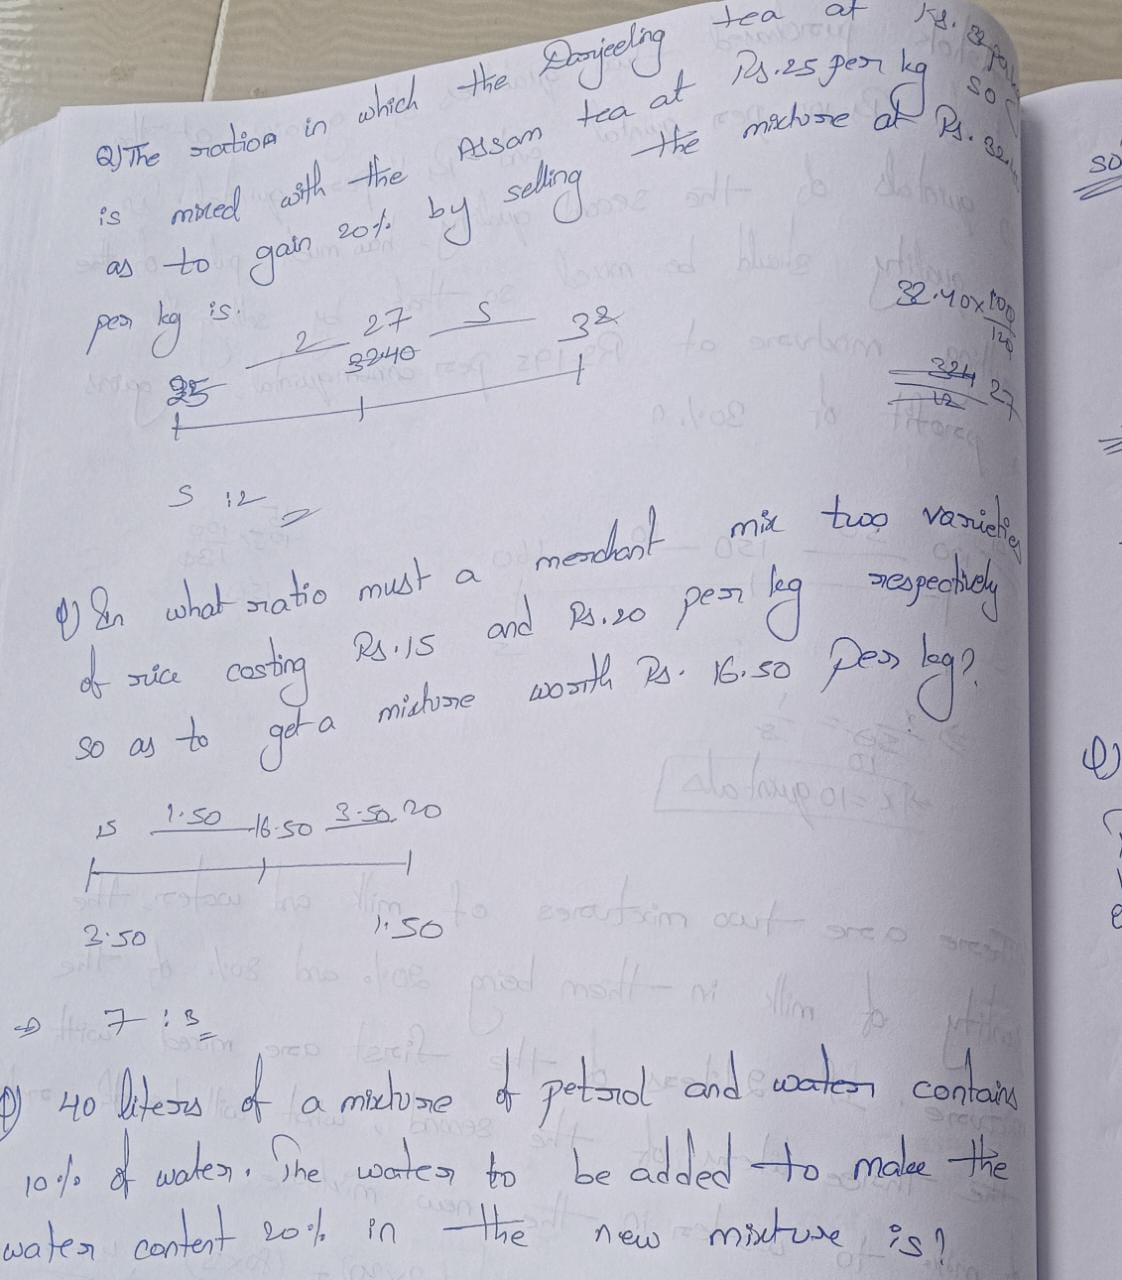 Q) The ration in which the Darjeeling tea at Rs. 32 per
is mixed with the Assam tea at Rs. 25 per kg so
as to gain 20% by selling the mixture at Rs. 32.
per kg is.
32.40 x 100/120
2 27 5 32
25 3240
324 27
12
5 : 2
Q) In what ratio must a merchant mix two varieties
of rice costing Rs. 15 and Rs. 20 per kg respectively
so as to get a mixture worth Rs. 16.50 per kg?
15 1.50 16.50 3.50 20
3.50 1.50
⇒ 7 : 3
Q) 40 liters of a mixture of petrol and water contains
10% of water. The water to be added to make the
water content 20% in the new mixture is?
so
Q)